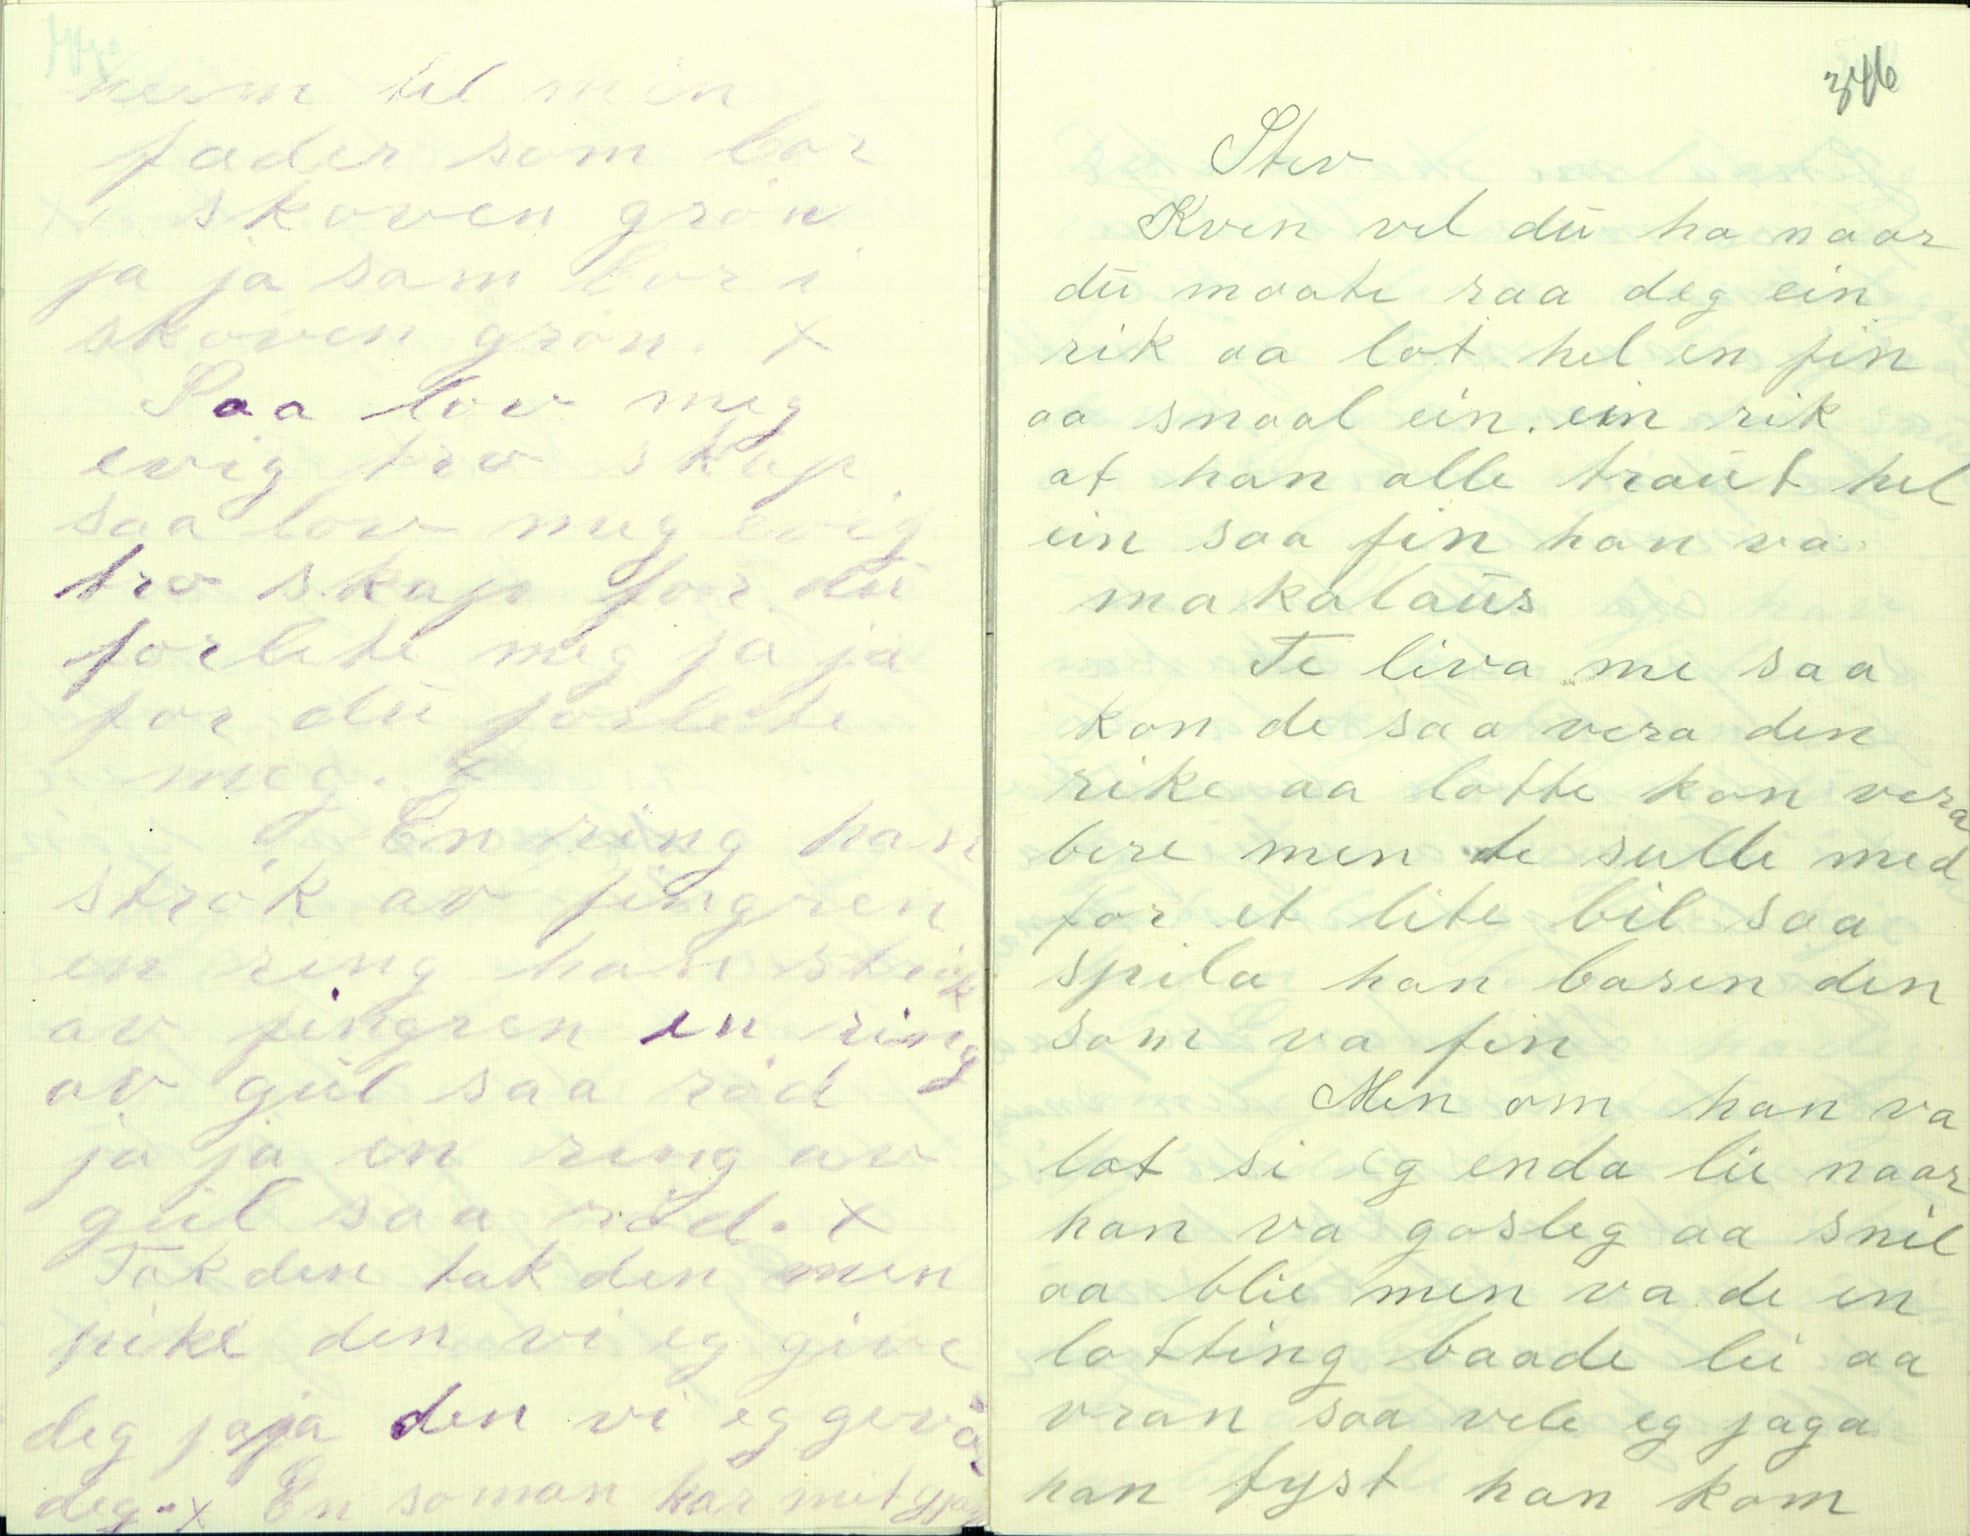 heim tel min
fader som bor
i skoven grøn
ja ja som bor i
skoven grøn. x
Saa lov meg
evig tro skap
saa lov meg evig
tro skap for dú
forlete meg ja ja
for dú forlete
meg. x
En ring han
strøk av fingren
en ring han strøk
av fingren en ring
av gúl saa rød
ja ja en ring av
gúl saa rød. x
Tak den tak den min
pike den vi eg give
deg ja ja den vi eg geva
deg. x En soman har mit
346
Stev
Kven vel dú ha naar
dú maate raa deg ein
rik aa lat hel en fin
aa snaal ein. ein rik
at han alle traút hel
ein saa fin han va
makalaús
Te liva me saa
kan de saa vera den
rike aa latte kan vera
bere men de sulle med
for et lite bil saa
spila han basen den
som va fin
Men om han va
lat si eg enda lie naar
han va gasleg aa snil
aa blie men va de en
latting baade lei aa
vran saa vele eg jaga
han fyst han kom